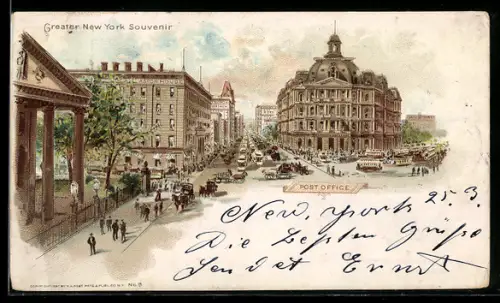 Greater New York Souvenir
ASTOR HOUSE
POST OFFICE
New York 25.3.
Die besten Grüße
sendet Ernst
No. 8